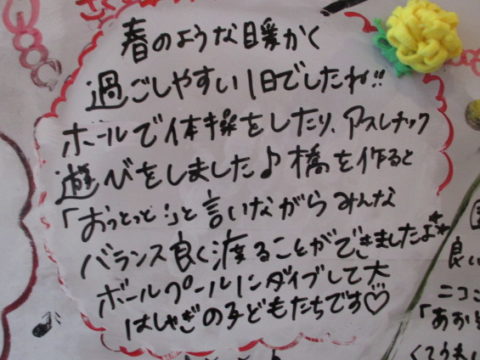 春のような暖かく
過ごしやすい1日でしたね!!
ホールで体操をしたり、アスレチック
遊びをしました♪橋を作ると
「おっとっと」と言いながらみんな
バランス良く渡ることができましたよ
ボールプールにダイブして大
はしゃぎの子どもたちです♡
良い
ニコニコ
「あお